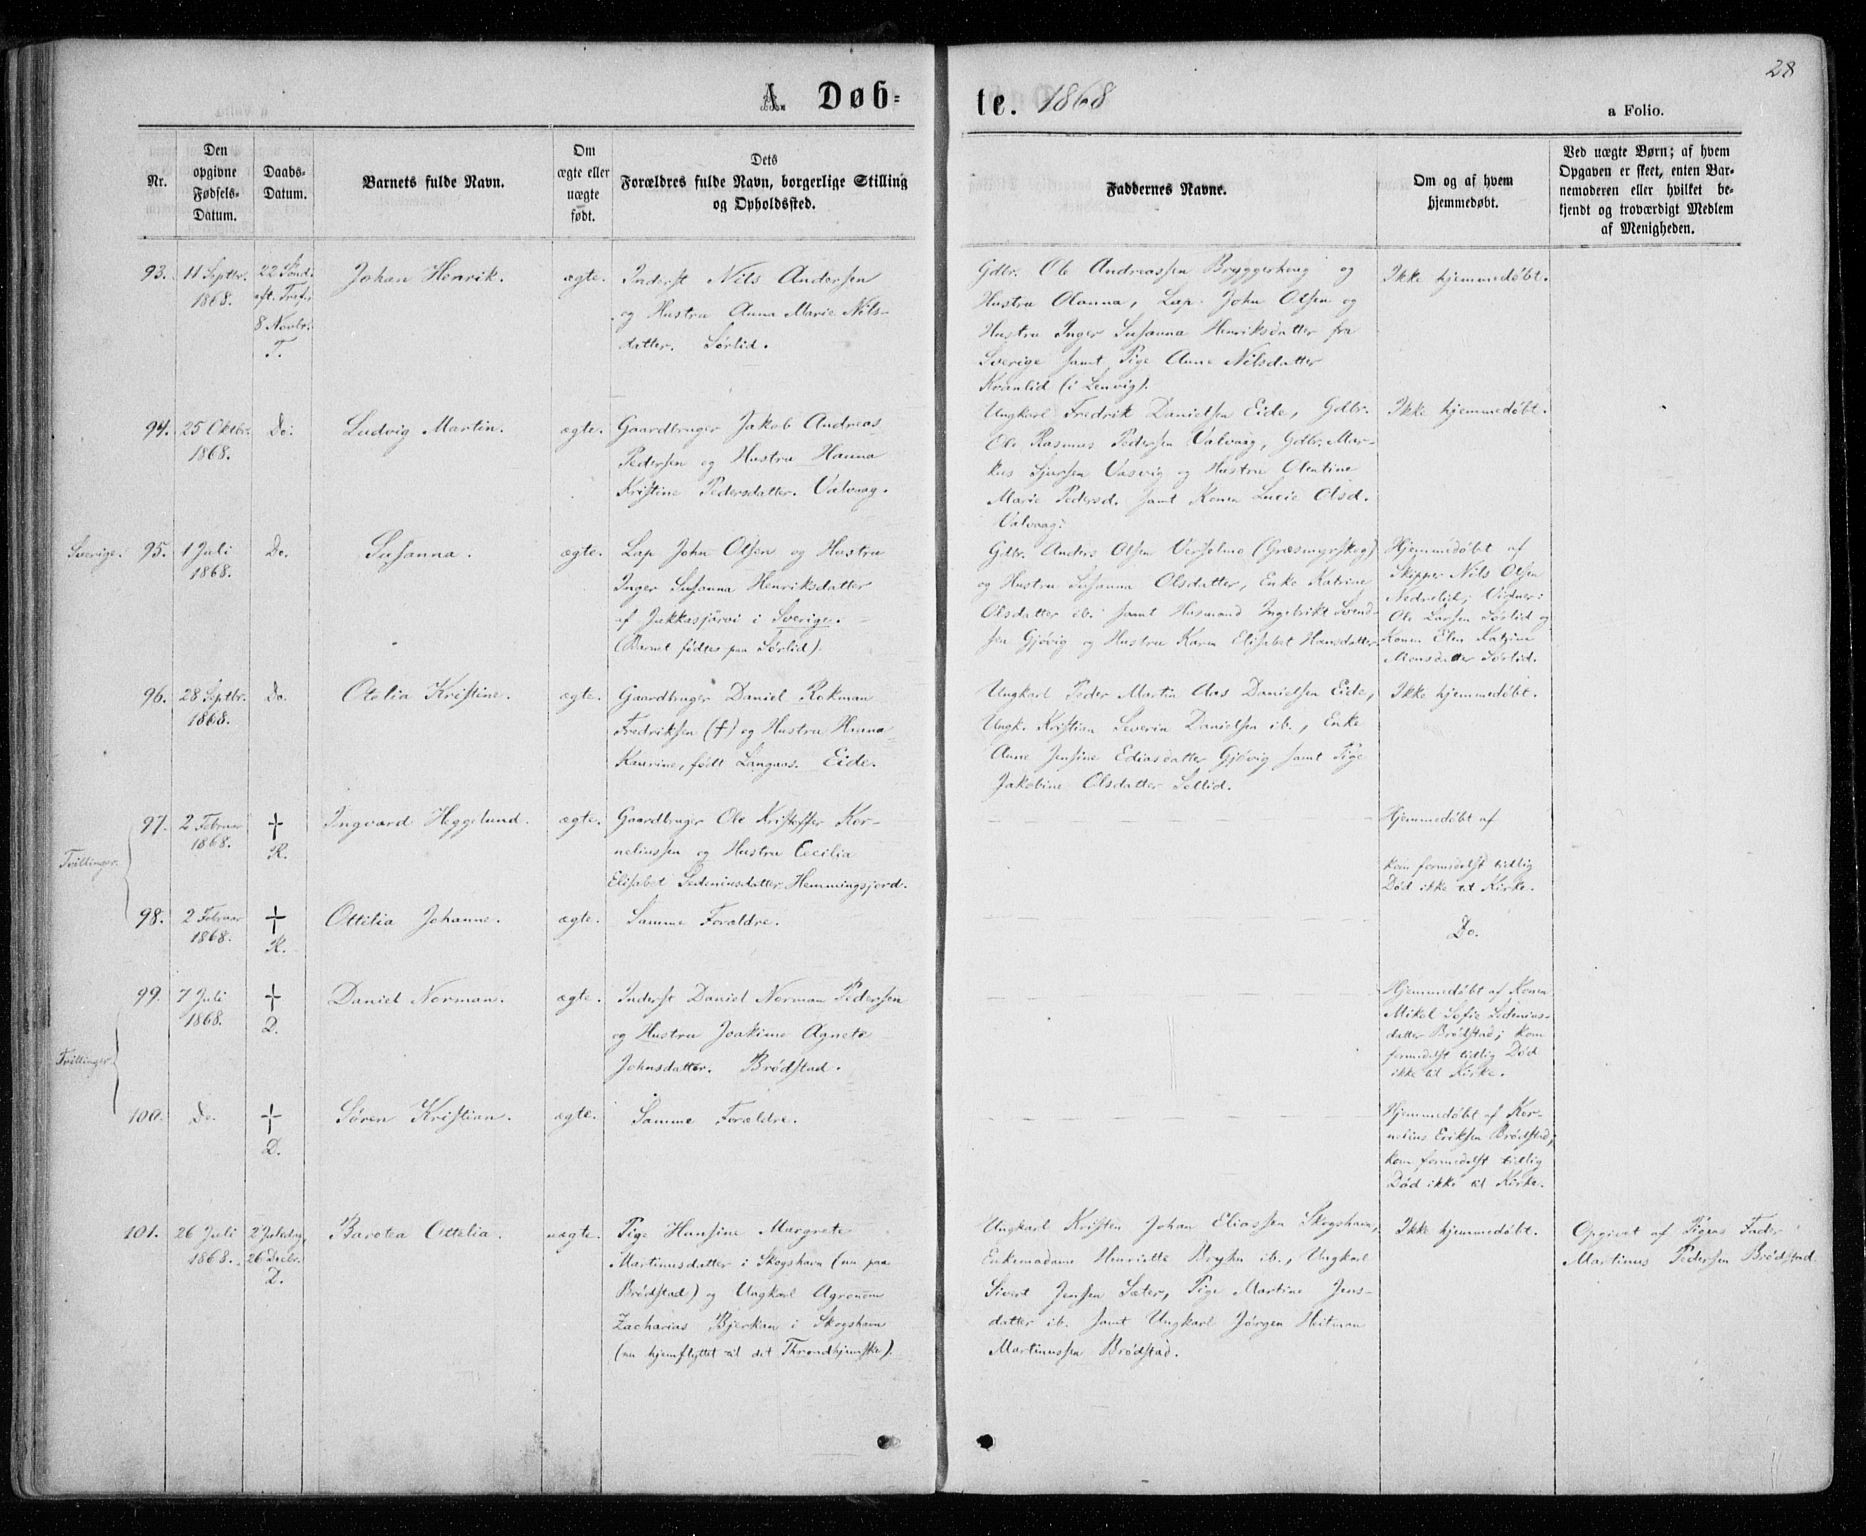 28
A. Døb-
te. 1868
a Folio.
Nr.
Den opgivne Fødsels-Datum.
Daabs-Datum.
Barnets fulde Navn.
Om ægte eller uægte født.
Dets Forældres fulde Navn, borgerlige Stilling og Opholdssted.
Faddernes Navne.
Om og af hvem hjemmedøbt.
Ved uægte Børn; af hvem Opgaven er skeet, enten Barnemoderen eller hvilket bekjendt og troværdigt Medlem af Menigheden.
93.
11 Septbr.
1868.
22 Sønd.
eft. Tref.
8 Novbr.
T.
Johan Henrik.
ægte.
Inderst Nils Andersen
og Hustru Anna Marie Nils-
datter. Sørlid.
Gdbr. Ole Andreassen Bryggerhaug og
Hustru Olanna, Lap John Olsen og
Hustru Inger Susanna Henriksdatter fra
Sverige samt Pige Anne Nilsdatter
Kvanlid (i Lenvig).
Ikke hjemmedøbt.
94.
25 Oktbr.
1868.
Do.
Ludvig Martin.
ægte.
Gaardbruger Jakob Andreas
Pedersen og Hustru Hanna
Kristine Pedersdatter. Valvaag.
Ungkarl Fredrik Danielsen Eide, Gdbr.
Ole Rasmus Pedersen Valvaag, Gdbr. Mar-
kus Sjursen Vasvig og Hustru Olentine
Marie Pedersd. samt Konen Lucie Olsd.
Valvaag.
Ikke hjemmedøbt.
Sverige.
95.
1 Juli
1868.
Do.
Susanna.
ægte.
Lap John Olsen og Hustru
Inger Susanna Henriksdatter
af Jukkasjärvi i Sverige.
(Barnet fødtes paa Sørlid).
Gdbr. Anders Olsen Versolmo (Græsmyrskog)
og Hustru Susanna Olsdatter, Enke Katrine
Olsdatter ib. samt Husmand Ingebrikt Svend-
sen Gjøvig og Hustru Karen Elisabet Hansdatter
Hjemmedøbt af
Skipper Nils Olsen
Nedrelid; Vidner:
Ole Larsen Sørlid og
Konen Elen Katrine
Monsdatter Sørlid.
96.
28 Septbr.
1868.
Do.
Otelia Kristine.
ægte.
Gaardbruger Daniel Rokman
Fredriksen (†) og Hustru Hanna
Kaurine, født Langaas. Eide.
Ungkarl Peder Martin Aas Danielsen Eide,
Ungk. Kristian Severin Danielsen ib., Enke
Anne Jensine Ediasdatter Gjøvig samt Pige
Jakobine Olsdatter Sollid.
Ikke hjemmedøbt.
Tvillinger.
97.
2 Februar
1868.
†
K.
Ingvard Heggelund.
ægte.
Gaardbruger Ole Kristoffer Kor-
neliussen og Hustru Cecilia
Elisabet Sedeniusdatter Hemmingsjord.
Hjemmedøbt af
kom formedelst tidlig
Død ikke til Kirke.
98.
2 Februar
1868.
†
K.
Ottilia Johanne.
ægte.
Samme Forældre.
Do.
Tvillinger.
99.
7 Juli
1868.
†
D.
Daniel Norman.
ægte.
Inderst Daniel Norman Pedersen
og Hustru Joakime Agnete
Johnsdatter. Brødstad.
Hjemmedøbt af Konen
Mikel Sofie Sedenius-
datter Brødstad; kom
formedelst tidlig Død
ikke til Kirke.
100.
Do.
†
D.
Søren Kristian.
ægte.
Samme Forældre.
Hjemmedøbt af Kor-
nelius Eriksen Brødstad;
kom formedelst tidlig
Død ikke til Kirke.
101.
26 Juli
1868.
2 Juledag,
26 Decbr.
D.
Barotea Ottelia.
uægte.
Pige Hansine Margrete
Martinusdatter i Skogshavn (nu paa
Brødstad) og Ungkarl Agronom
Zacharias Bjerkan i Skogshavn
(nu hjemflyttet til det Throndhjemske).
Ungkarl Kristen Johan Eliassen Skogshavn,
Enkemadame Henriette ib., Ungkarl
Sivert Jensen Sæter, Pige Martine Jens-
datter ib. samt Ungkarl Jørgen Heitman
Martinussen Brødstad.
Ikke hjemmedøbt.
Opgivet af Pigens Fader
Martinus Pedersen Brødstad.